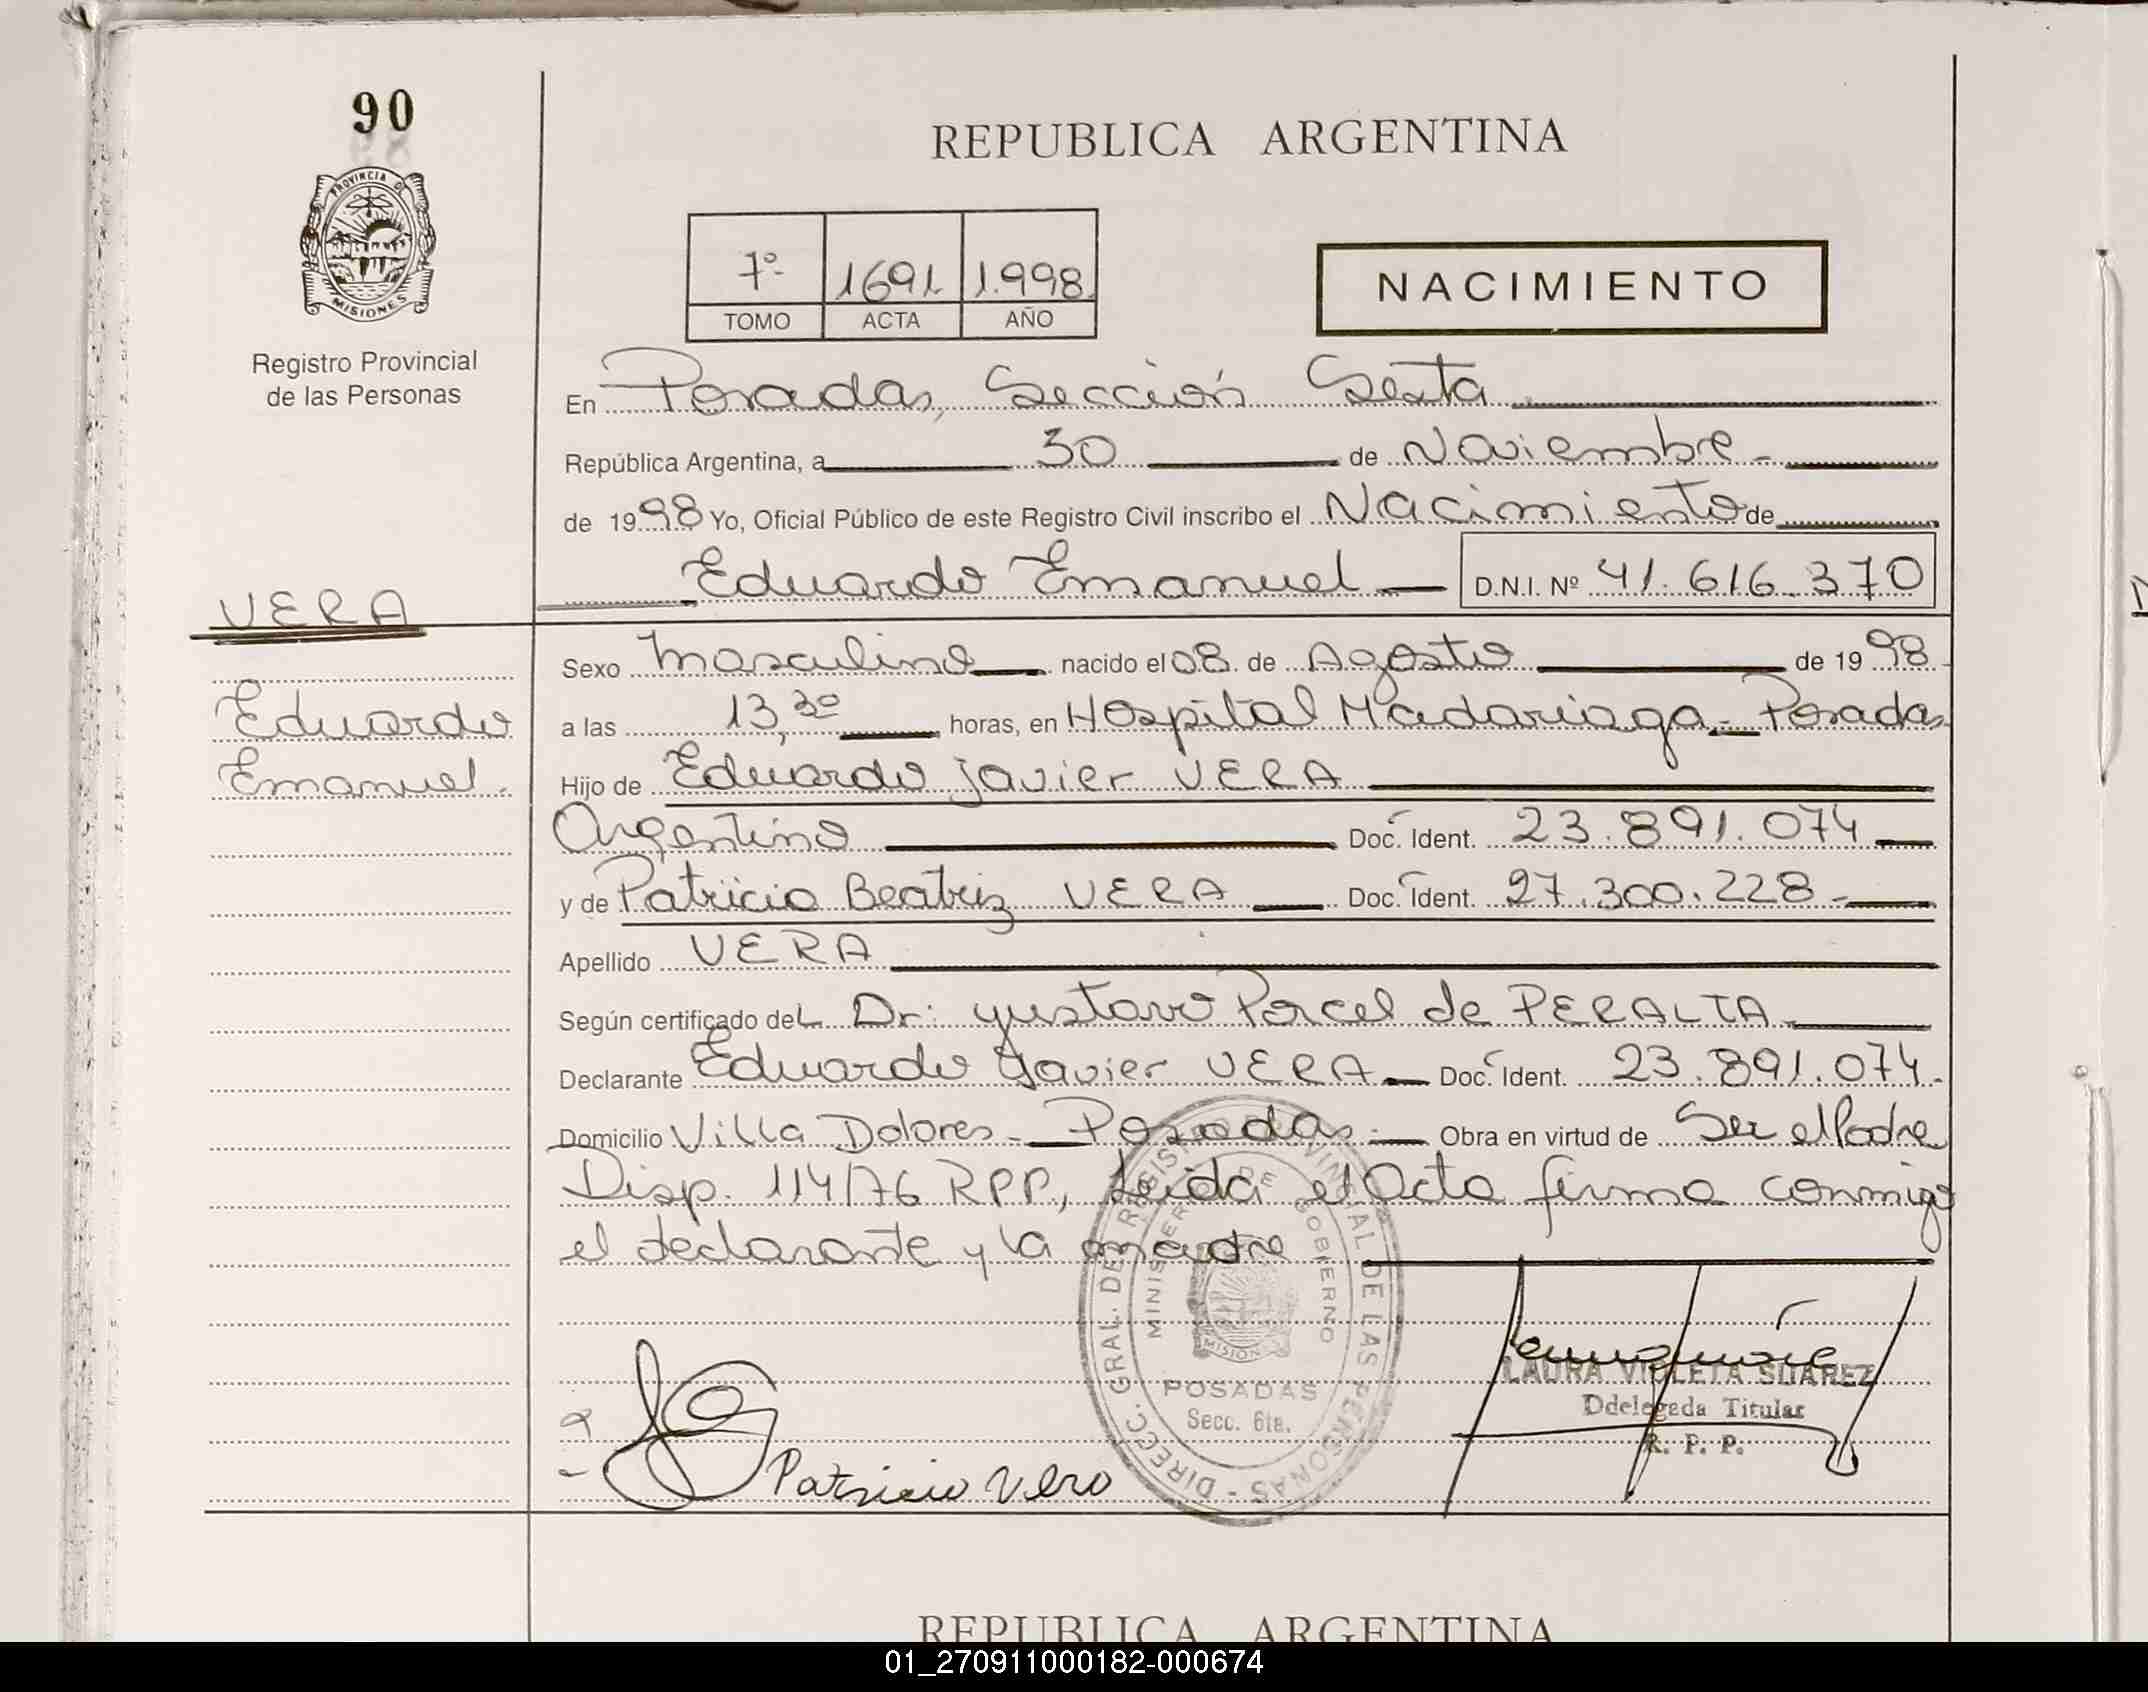 90
PROVINCIA DE
MISIONES
Registro Provincial
de las Personas
REPUBLICA ARGENTINA
7º 1691 1.998
TOMO ACTA AÑO
NACIMIENTO
En Posadas, Sección Sexta
República Argentina, a 30 de Noviembre
de 1998 Yo, Oficial Público de este Registro Civil inscribo el Nacimiento de
Eduardo Emanuel D.N.I. Nº 41.616.370
VERA
Eduardo
Emanuel.
Sexo Masculino nacido el 08 de Agosto de 1998
a las 13,30 horas, en Hospital Madariaga - Posadas
Hijo de Eduardo Javier VERA
Argentino Doc. Ident. 23.891.074
y de Patricia Beatriz VERA Doc. Ident. 27.300.228
Apellido VERA
Según certificado del Dr: Gustavo Porcel de PERALTA
Declarante Eduardo Javier VERA Doc. Ident. 23.891.074.
Domicilio Villa Dolores - Posadas Obra en virtud de Ser el Padre
Disp. 114/76 RPP, Leida el Acta firma conmigo
el declarante y la madre
DIRECC. GRAL. DE REGISTRO PROVINCIAL DE LAS PERSONAS -
MINISTERIO DE GOBIERNO
MISIONES
POSADAS
Secc. 6ta.
Patricia Vera
LAURA VIOLETA SUAREZ
Ddelegada Titular
R. P. P.
REPUBLICA ARGENTINA
01_270911000182-000674